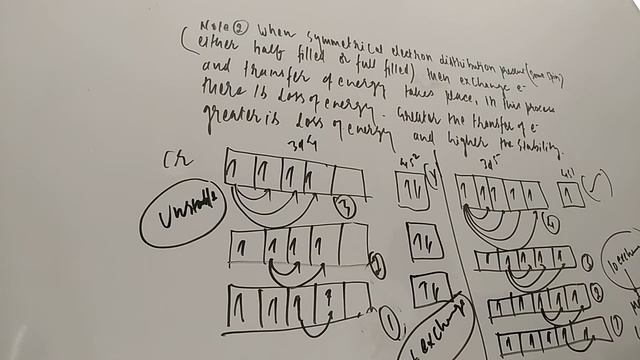 Note ② When symmetrical electron distribution present (same spin)
(either half filled or full filled) then exchange e-
and transfer of energy takes place, in this process
there is loss of energy. Greater the transfer of e-
greater is loss of energy and higher the stability.
Cr 3d4 4s2 3d5 4s1
1 1 1 1 1↓ 1 1 1 1 1 1 (✓)
Unstable
3 4
1 1 1 1 1↓ 1 1 1 1 1
2 3
1 1 1 1 1↓ 1 1 1 1 1
1 2
exchange 1 1 1 1 1